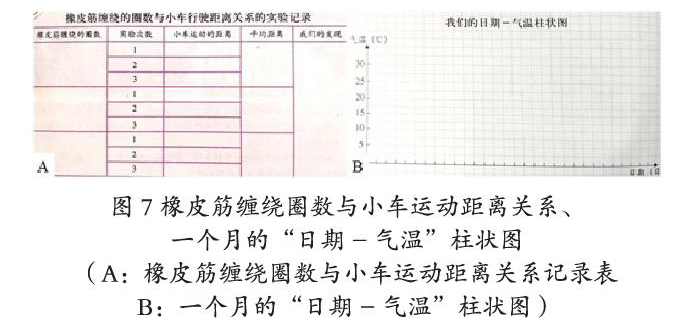 橡皮筋缠绕的圈数与小车行驶距离关系的实验记录
橡皮筋缠绕的圈数 实验次数 小车运动的距离 平均距离 我们的发现
1
2
3
1
2
3
1
2
3
A
我们的日期－气温柱状图
气温（℃）
30
25
20
15
10
5
日期（日
B
图 7 橡皮筋缠绕圈数与小车运动距离关系、
一个月的“日期－气温”柱状图
（A：橡皮筋缠绕圈数与小车运动距离关系记录表
B：一个月的“日期－气温”柱状图）